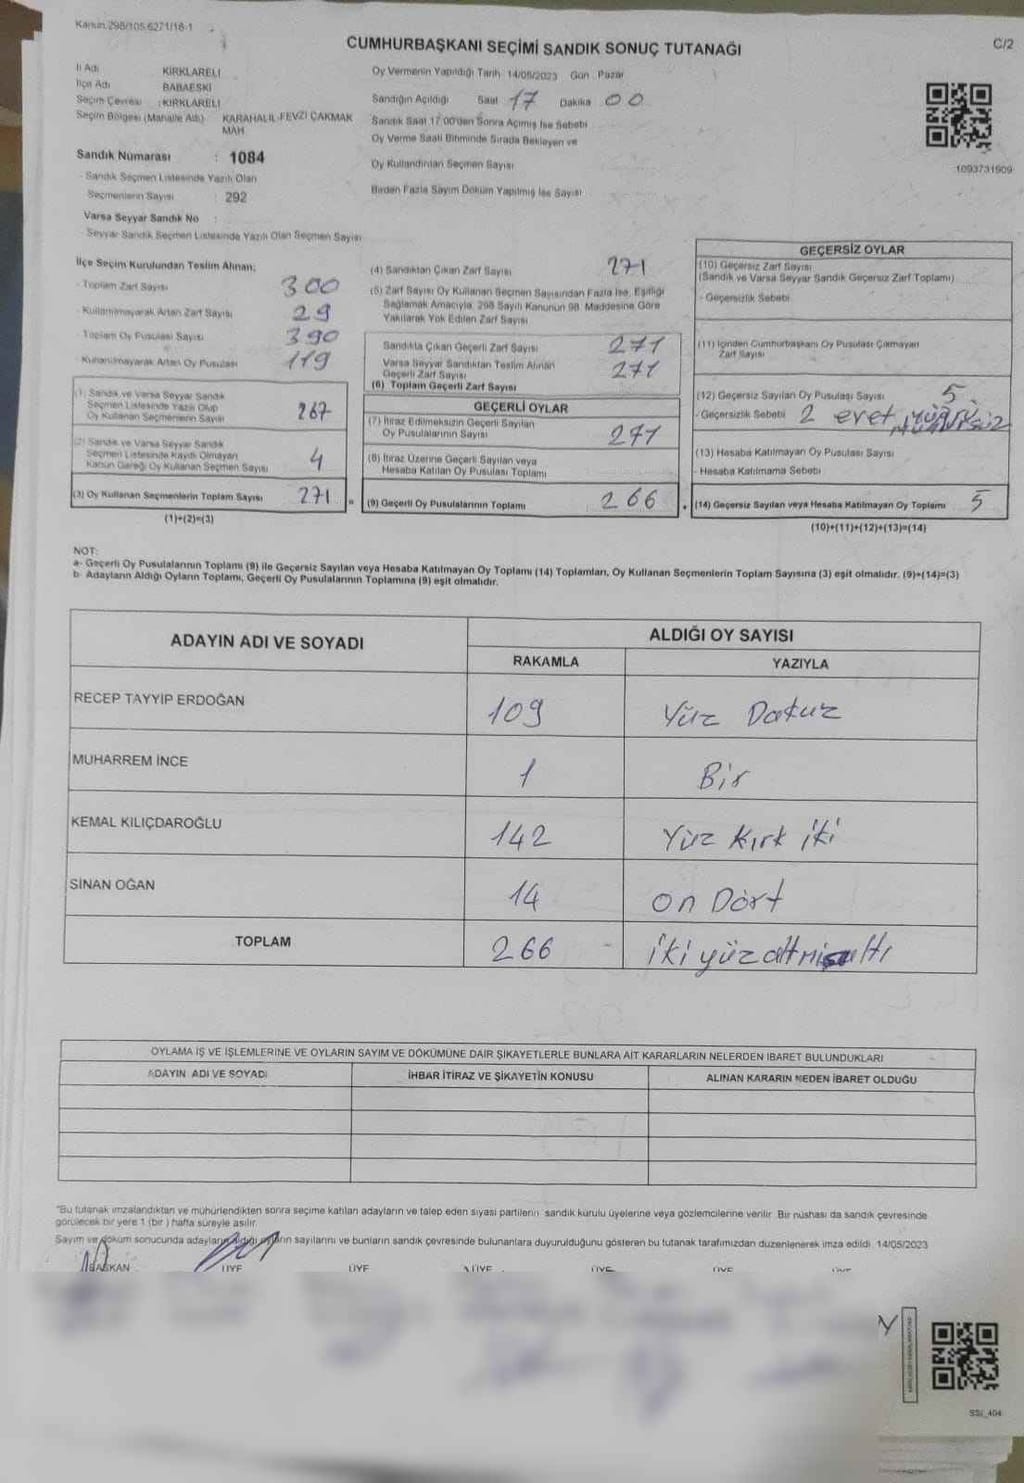 Kanun.298/105.6271/16-1
CUMHURBAŞKANI SEÇİMİ SANDIK SONUÇ TUTANAĞI
C/2
İl Adı KIRKLARELİ
İlçe Adı BABAESKİ
Seçim Çevresi : KIRKLARELİ
Seçim Bölgesi (Mahalle Adı) KARAHALİL-FEVZİ ÇAKMAK MAH.
Sandık Numarası : 1084
- Sandık Seçmen Listesinde Yazılı Olan
Seçmenlerin Sayısı : 292
Varsa Seyyar Sandık No :
- Seyyar Sandık Seçmen Listesinde Yazılı Olan Seçmen Sayısı
Oy Vermenin Yapıldığı Tarih 14/05/2023 Gün Pazar
Sandığın Açıldığı Saat 17 Dakika 00
Sandık Saat 17:00'den Sonra Açmış İse Sebebi
Oy Verme Saati Bitiminde Sırada Bekleyen ve
Oy Kullandırılan Seçmen Sayısı
Birden Fazla Sayım Döküm Yapılmış İse Sayısı
1093731909
İlçe Seçim Kurulundan Teslim Alınan;
- Toplam Zarf Sayısı 300
- Kullanılmayarak Artan Zarf Sayısı 29
- Toplam Oy Pusulası Sayısı 390
- Kullanılmayarak Artan Oy Pusulası 119
(1) Sandık ve Varsa Seyyar Sandık
Seçmen Listesinde Yazılı Olup
Oy Kullanan Seçmenlerin Sayısı 267
(2) Sandık ve Varsa Seyyar Sandık
Seçmen Listesinde Kayıtlı Olmayan
Kanun Gereği Oy Kullanan Seçmen Sayısı 4
(3) Oy Kullanan Seçmenlerin Toplam Sayısı 271
(1)+(2)=(3)
(4) Sandıktan Çıkan Zarf Sayısı 271
(5) Zarf Sayısı Oy Kullanan Seçmen Sayısından Fazla İse, Eşitliği
Sağlamak Amacıyla, 298 Sayılı Kanunun 98. Maddesine Göre
Yakılarak Yok Edilen Zarf Sayısı
Sandıkta Çıkan Geçerli Zarf Sayısı 271
Varsa Seyyar Sandıktan Teslim Alınan
Geçerli Zarf Sayısı 271
(6) Toplam Geçerli Zarf Sayısı
GEÇERLİ OYLAR
(7) İtiraz Edilmeksizin Geçerli Sayılan
Oy Pusulalarının Sayısı 271
(8) İtiraz Üzerine Geçerli Sayılan veya
Hesaba Katılan Oy Pusulası Toplamı
(9) Geçerli Oy Pusulalarının Toplamı 266
GEÇERSİZ OYLAR
(10) Geçersiz Zarf Sayısı
(Sandık ve Varsa Seyyar Sandık Geçersiz Zarf Toplamı)
- Geçersizlik Sebebi
(11) İçinden Cumhurbaşkanı Oy Pusulası Çıkmayan
Zarf Sayısı
(12) Geçersiz Sayılan Oy Pusulası Sayısı 5
- Geçersizlik Sebebi 2 evet,
(13) Hesaba Katılmayan Oy Pusulası Sayısı
- Hesaba Katılmama Sebebi
(14) Geçersiz Sayılan veya Hesaba Katılmayan Oy Toplamı 5
(10)+(11)+(12)+(13)=(14)
NOT:
a- Geçerli Oy Pusulalarının Toplamı (9) ile Geçersiz Sayılan veya Hesaba Katılmayan Oy Toplamı (14) Toplamları, Oy Kullanan Seçmenlerin Toplam Sayısına (3) eşit olmalıdır. (9)+(14)=(3)
b- Adayların Aldığı Oyların Toplamı, Geçerli Oy Pusulalarının Toplamına (9) eşit olmalıdır.
ADAYIN ADI VE SOYADI ALDIĞI OY SAYISI
RAKAMLA YAZIYLA
RECEP TAYYİP ERDOĞAN 109 Yüz Dokuz
MUHARREM İNCE 1 Bir
KEMAL KILIÇDAROĞLU 142 Yüz Kırk iki
SİNAN OĞAN 14 on Dört
TOPLAM 266 iki yüz altmış altı
OYLAMA İŞ VE İŞLEMLERİNE VE OYLARIN SAYIM VE DÖKÜMÜNE DAİR ŞİKAYETLERLE BUNLARA AİT KARARLARIN NELERDEN İBARET BULUNDUKLARI
ADAYIN ADI VE SOYADI İHBAR İTİRAZ VE ŞİKAYETİN KONUSU ALINAN KARARIN NEDEN İBARET OLDUĞU
"Bu tutanak imzalandıktan ve mühürlendikten sonra seçime katılan adayların ve talep eden siyasi partilerin sandık kurulu üyelerine veya gözlemcilerine verilir. Bir nüshası da sandık çevresinde
görülecek bir yere 1 (bir) hafta süreyle asılır.
Sayım ve döküm sonucunda adayların aldığı oyların sayılarını ve bunların sandık çevresinde bulunanlara duyurulduğunu gösteren bu tutanak tarafımızdan düzenlenerek imza edildi. 14/05/2023
BAŞKAN ÜYE ÜYE ÜYE ÜYE ÜYE ÜYE